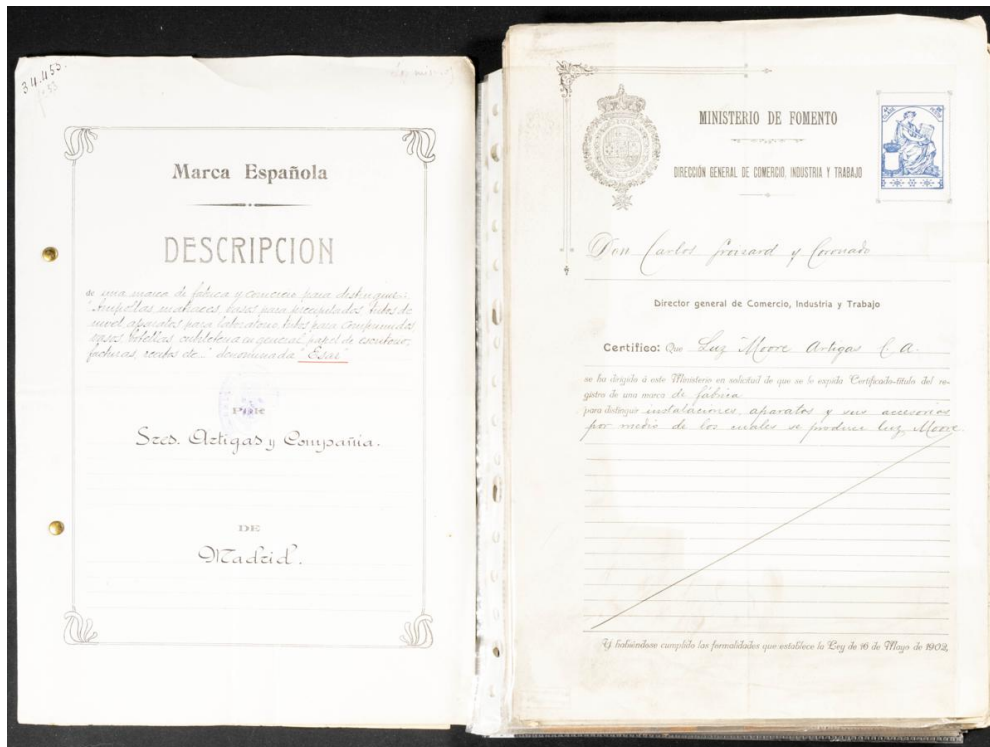 34.453.
Marca Española
DESCRIPCION
de una marca de fábrica y comercio para distinguir:
"Ampollas matraces, vasos para precipitados tubos de
nivel, aparatos para laboratorio tubos para comprimidos
vasos botellas, cristalería en general, papel de escritorio,
facturas, sobres de" denominada "Esar"
POR
Sres. Artigas y Compañía.
DE
Madrid.
MINISTERIO DE FOMENTO
DIRECCIÓN GENERAL DE COMERCIO, INDUSTRIA Y TRABAJO
Don Carlos y Coronado
Director general de Comercio, Industria y Trabajo
Certifico: Que Luz Moore Artigas C.A.
se ha dirigido á este Ministerio en solicitud de que se le expida Certificado-título del re-
gistro de una marca de fábrica
para distinguir instalaciones, aparatos y sus accesorios
por medio de los cuales se produce luz Moore.
Y habiéndose cumplido las formalidades que establece la Ley de 16 de Mayo de 1902,